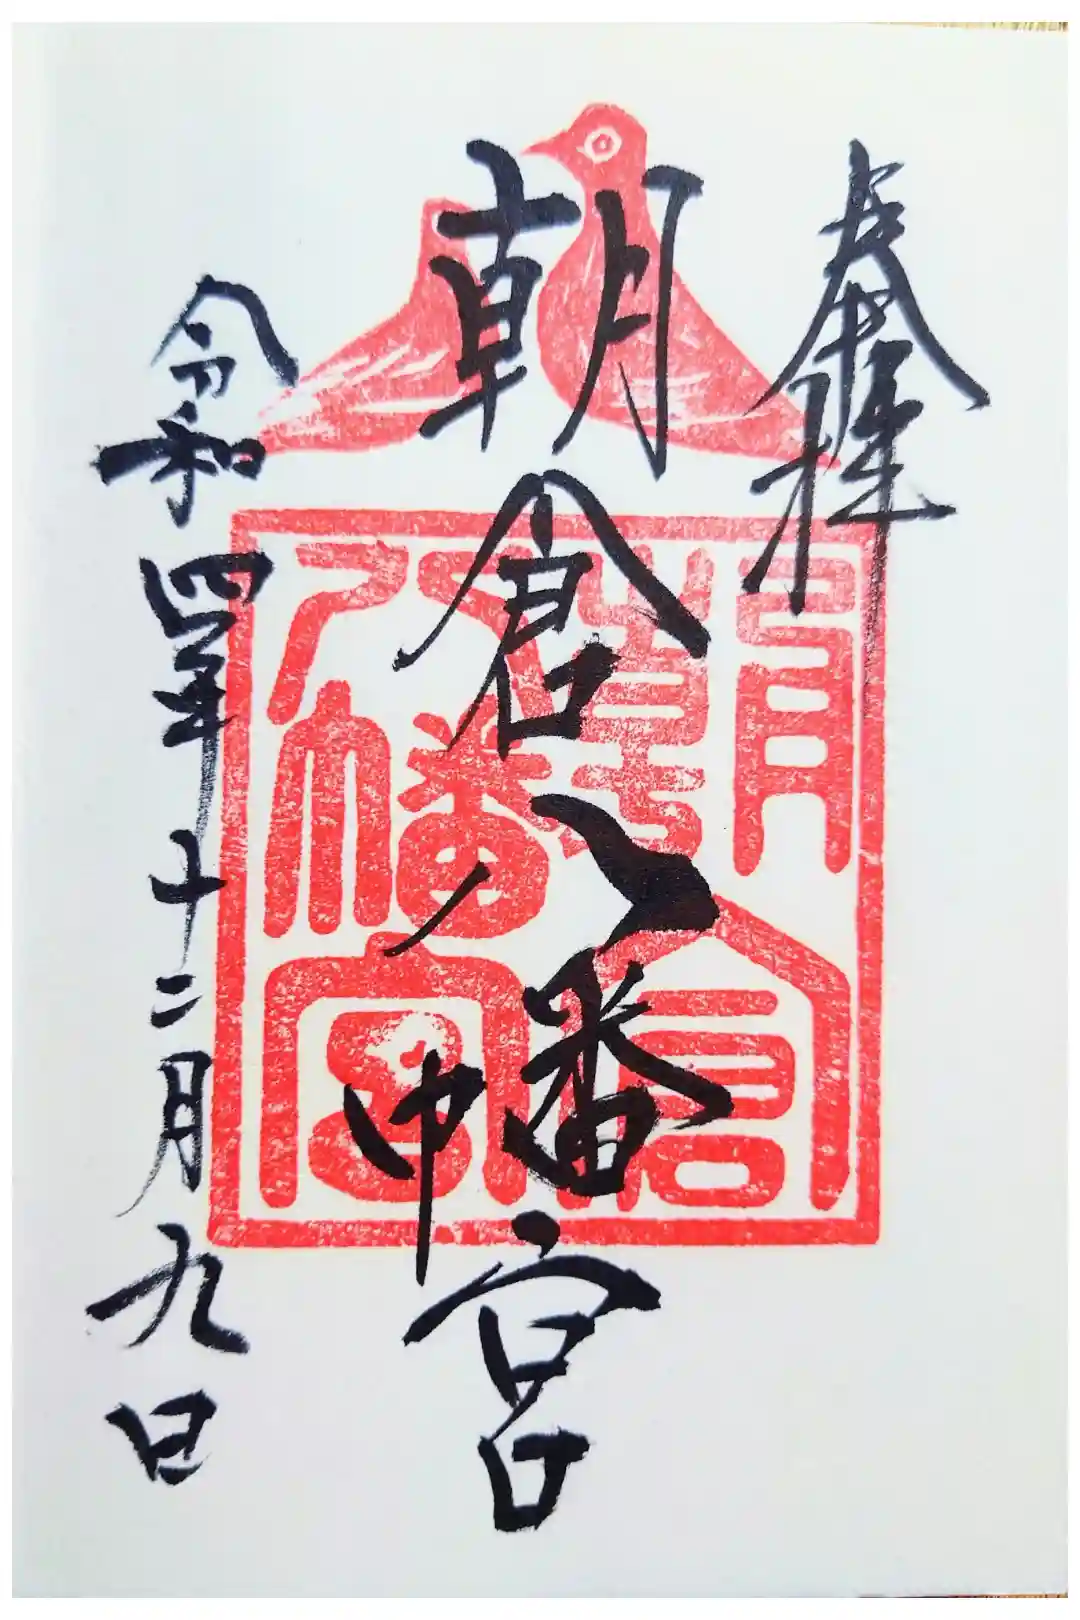 奉拝
朝倉八幡宮
令和四年十二月九日
朝倉八幡宮